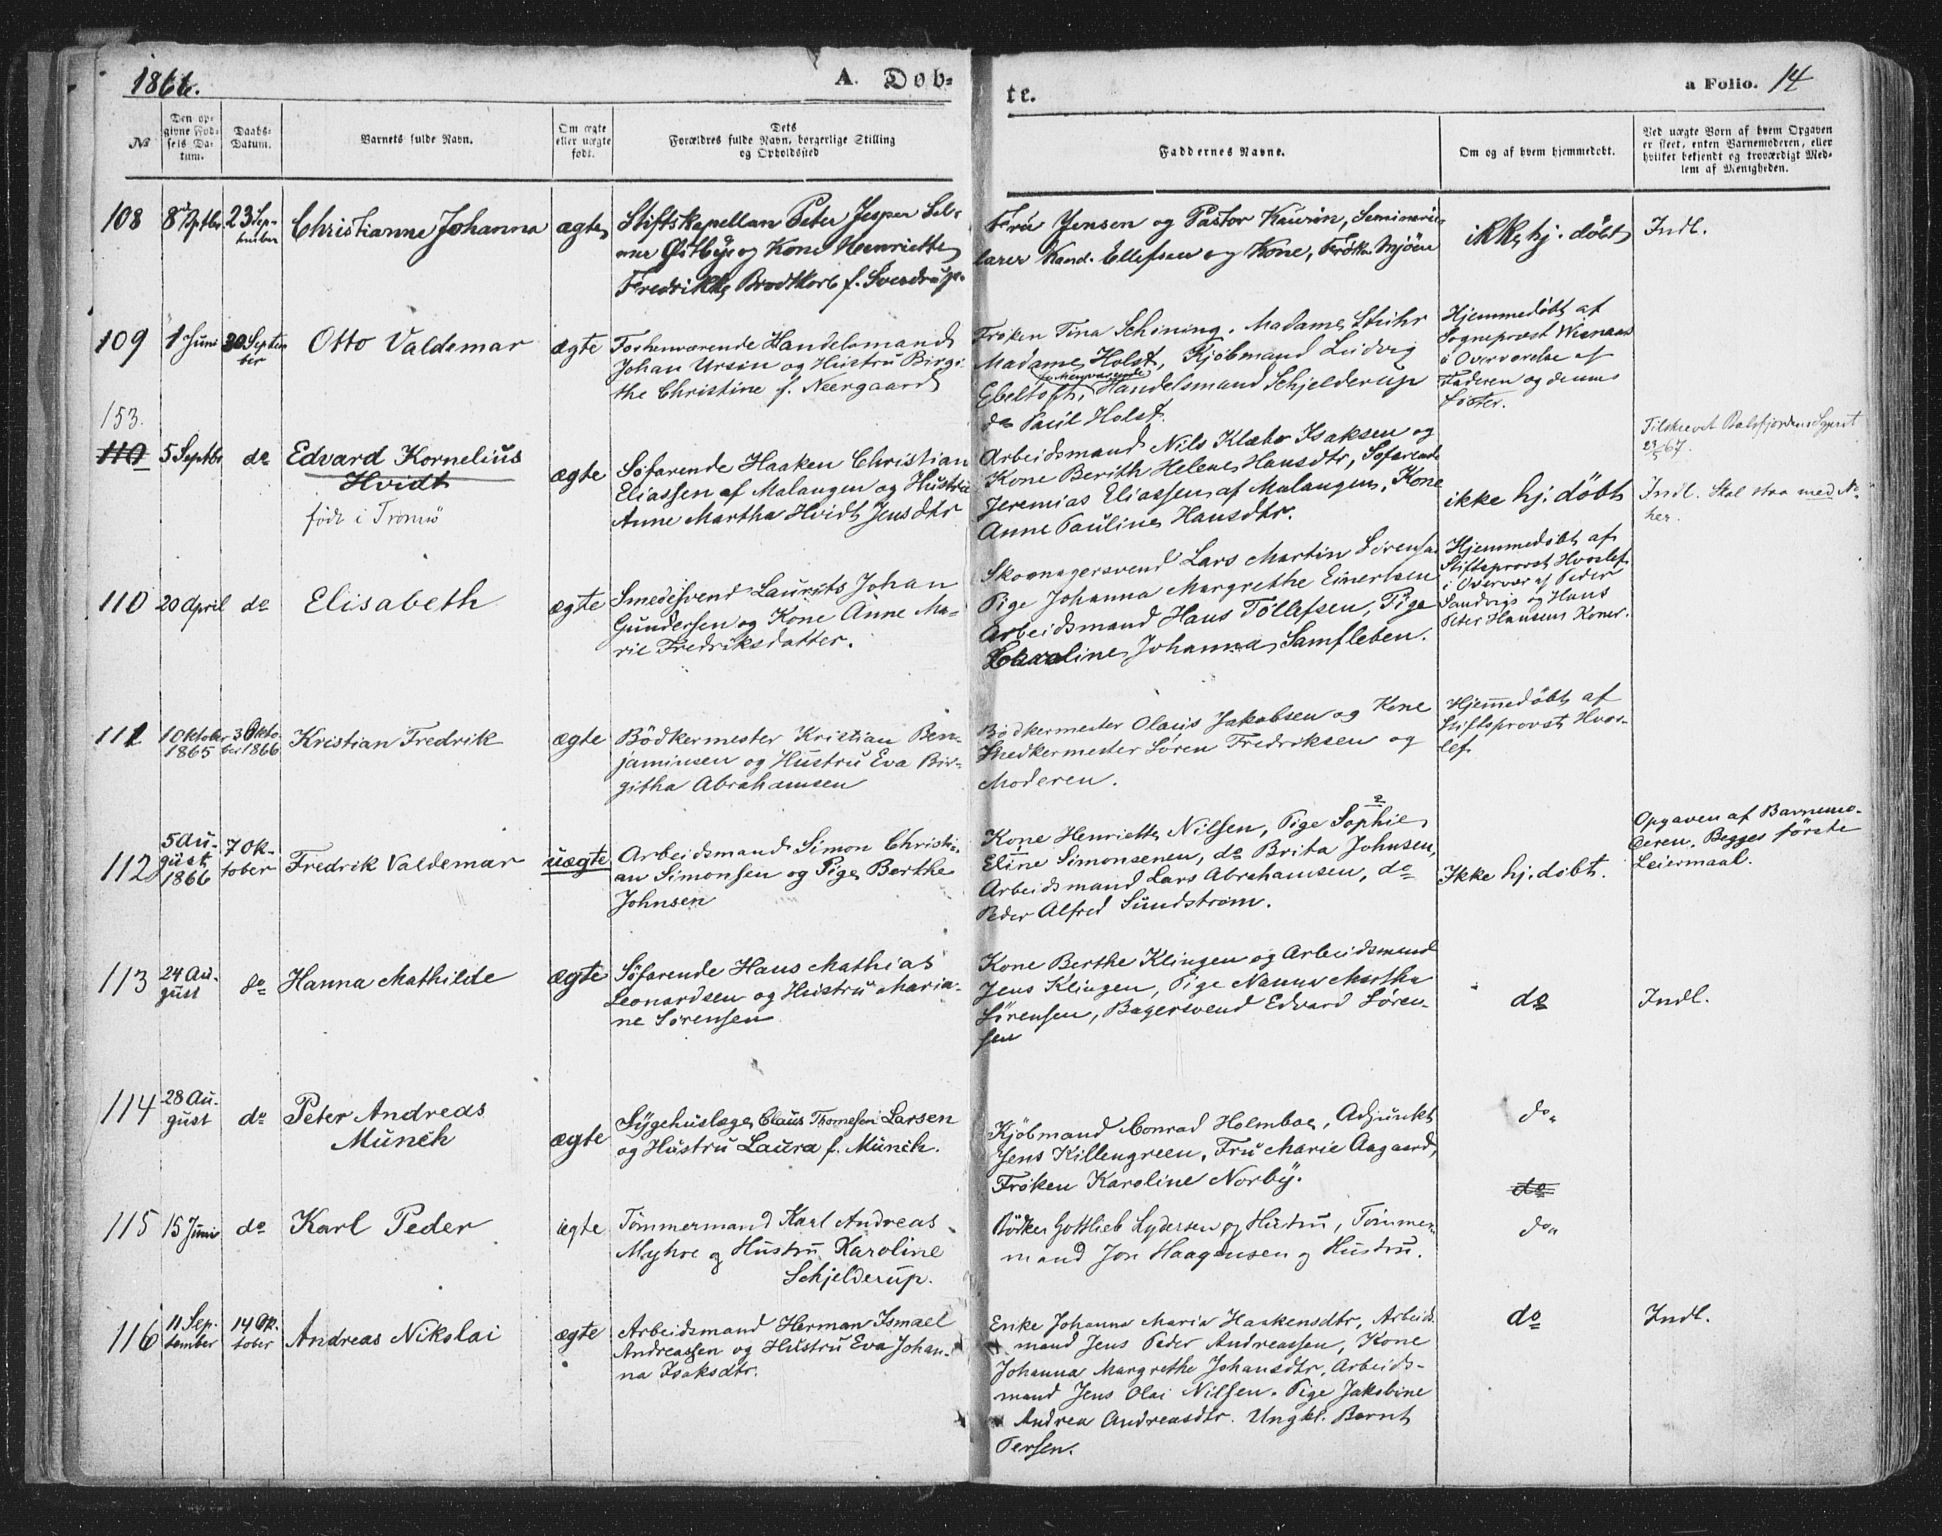 1866.
A. Døb-
te.
a Folio. 14
№
Den op-
givne Fød-
sels Da-
tum.
Daabs-
Datum.
Barnets fulde Navn.
Om ægte
eller uægte
født.
Dets
Forældres fulde Navn, borgerlige Stilling
og Opholdssted
Faddernes Navne.
Om og af hvem hjemmedøbt.
Ved uægte Børn af hvem Opgaven
er skeet, enten Barnemoderen, eller
hvilket bekjendt og troværdigt Med-
lem af Menigheden.
108
8 Septbr
23 Sep-
tember
Christianne Johanna
ægte
Stiftskapellan Peter Jesper Sel-
mer Østbye og Kone Henriette
Fredrikke Brodtkorb f. Sverdrup.
Fru Jensen og Pastor Kaurin, Seminarie-
lærer Kand. Ellefsen og Kone, Frøken Mjöen
ikke hj. døbt
Indl.
109
1 Juni
30 Septem
ber
Otto Valdemar
ægte
Forhenværende Handelsmand
Johan Ursin og Hustru Birgi-
the Christine f. Neergaard
Frøken Tina Schöning. Madame Stuhr
Madame Holst, Kjøbmand Ludvig
Ebeltoft, forhenværende Handelsmand Schjelderup
do Paul Holst.
Hjemmedøbt af
Sogneprovst Wisnæs
i Overværelse af
Faderen og dennes
Søster.
153.
110
5 Septbr
do
Edvard Kornelius
Hvidt
født i Tromsø
ægte
Søfarende Haaken Christian
Eliassen af Malangen og Hustru
Anne Martha Hvidt Jensdtr
Arbeidsmand Nils Klæbo Isaksen og
Kone Berith Helene Hansdtr, Søfarende
Jeremias Eliassen af Malangen, Kone
Anne Pauline Hansdtr.
ikke hj. døbt
Tilskrevet Balsfjordens Sgprst
23/5 67.
Indl. Skal staa med No
her.
110
20 April
do
Elisabeth
ægte
Smedesvend Laurits Johan
Gundersen og Kone Anne Ma-
rie Fredriksdatter.
Skomagersvend Lars Martin Sørensen
Pige Johanna Margrethe Einertsen
Arbeidsmand Hans Tollefsen, Pige
Karoline Johanna Samfleben.
Hjemmedøbt af
Stiftsprovst Hvoslef
i Overvær af Peder
Sandvigs og Hans
Peter Hansens Koner.
111
1 Oktober
1865
3 Okto-
ber 1866
Kristian Fredrik
ægte
Bödkermester Kristian Ben-
jaminsen og Hustru Eva Bir-
githa Abrahamsen
Bødkermester Olaus Jakobsen og Kone
Snedkermester Søren Fredriksen og
Moderen.
Hjemmedøbt af
Stiftsprovst Hvos-
lef.
112
5 Au-
gust
1866
7 Ok-
tober
Fredrik Valdemar
uægte
Arbeidsmand Simon Christi-
an Simonsen og Pige Berthe
Johnsen
Kone Henriette Nilsen, Pige Sophie
Eline Simonsenen, do Brita Johnsen,
Arbeidsmand Lars Abrahamsen, do
Peder Alfred Sundstrøm.
Ikke hj. døbt.
Opgaven af Barnemo-
deren. Begges første
Leiermaal.
113
24 Au-
gust
do
Hanna Mathilde
ægte
Søfarende Hans Mathias
Leonardsen og Hustru Maria-
ne Sørensen
Kone Berthe Klingen og Arbeidsmand
Jens Klingen, Pige Nanna Martha
Sørensen, Bagersvend Edvard Søren-
sen
do
Indl.
114
28 Au-
gust
do
Peter Andreas
Münch
ægte
Sygehuslæge Claus Thomesen Larsen
og Hustru Laura f. Münch.
Kjøbmand Conrad Holmboe, Adjunkt
Jens Killengreen, Fru Marie Aagaard,
Frøken Karoline Norby.
do
do
115
15 Juni
do
Karl Peder
ægte
Tømmermand Karl Andreas
Myhre og Hustru Karoline
Schjelderup.
Bødker Gottlieb Lydersen og Hustru, Tømmer-
mand Jon Haagensen og Hustru.
do
116
11 Sep-
tember
14 Ok-
tober
Andreas Nikolai
ægte
Arbeidsmand Herman Ismael
Andreassen og Hustru Eva Johan-
na Isaksdtr.
Enke Johanna Maria Haakensdtr, Arbeids-
mand Jens Peder Andreassen, Kone
Johanna Margrethe Johansdtr. Arbeids-
mand Jens Olai Nilsen. Pige Jakobine
Andrea Andreasdtr. Ungkl. Bernt
Persen.
do
Indl.